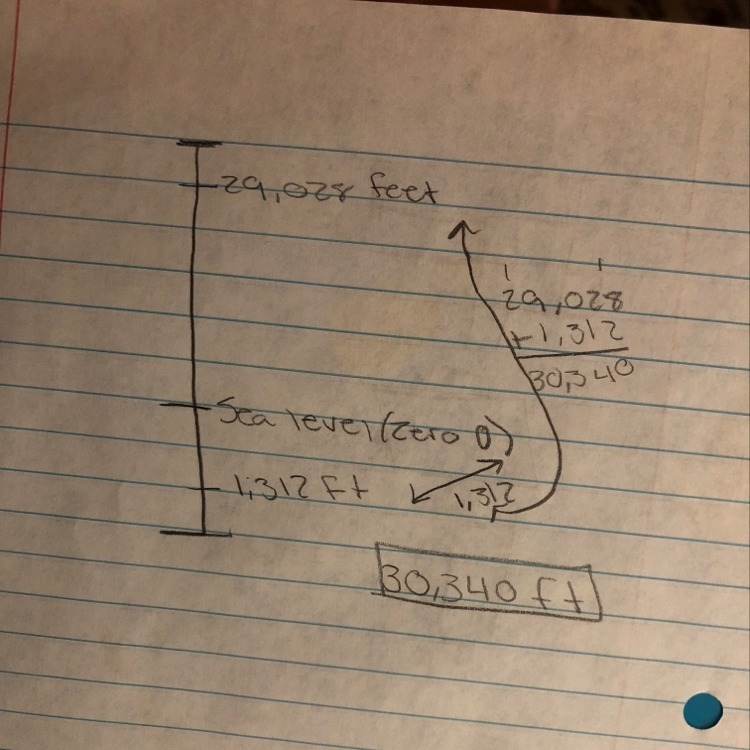 29,028 feet
1 1
29,028
+1,312
30,340
Sea level (zero 0)
1,312 ft
1,312
30,340 ft